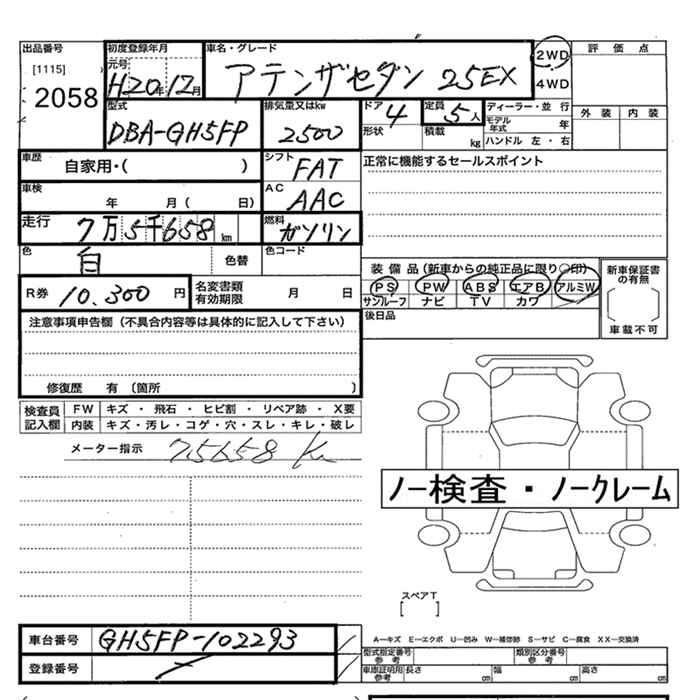 出品番号 初度登録年月 車名・グレード 2WD 評価点
[1115] 元号 H20年12月 アテンザセダン 25EX 4WD 外装 内装
2058
型式 排気量又はkw ドア 4 定員 5人 ディーラー・並行
DBA-GH5FP 2500 形状 積載 kg モデル年式 年
ハンドル 左・右
車歴 自家用・( ) シフト FAT 正常に機能するセールスポイント
車検 年 月( 日) AC AAC
走行 7万5千658km 燃料 ガソリン
色 白 色替 色コード
装備品(新車からの純正品に限り○印) 新車保証書の有無
PS PW ABS エアB アルミW
サンルーフ ナビ TV カワ
R券 10,300円 名変書類有効期限 月 日 後日品 車載不可
注意事項申告欄(不具合内容等は具体的に記入して下さい)
修復歴 有(箇所 )
検査員記入欄 FW キズ・飛石・ヒビ割・リペア跡・X要
内装 キズ・汚レ・コゲ・穴・スレ・キレ・破レ
メーター指示 75658 Km
ノー検査・ノークレーム
スペアT
[ ]
車台番号 GH5FP-102293
登録番号
A―キズ E―エクボ U―凹み W―補修跡 S―サビ C―腐食 XX―交換済
型式指定番号 参考 類別区分番号 参考
車庫証明用 参考 長さ cm 幅 cm 高さ cm